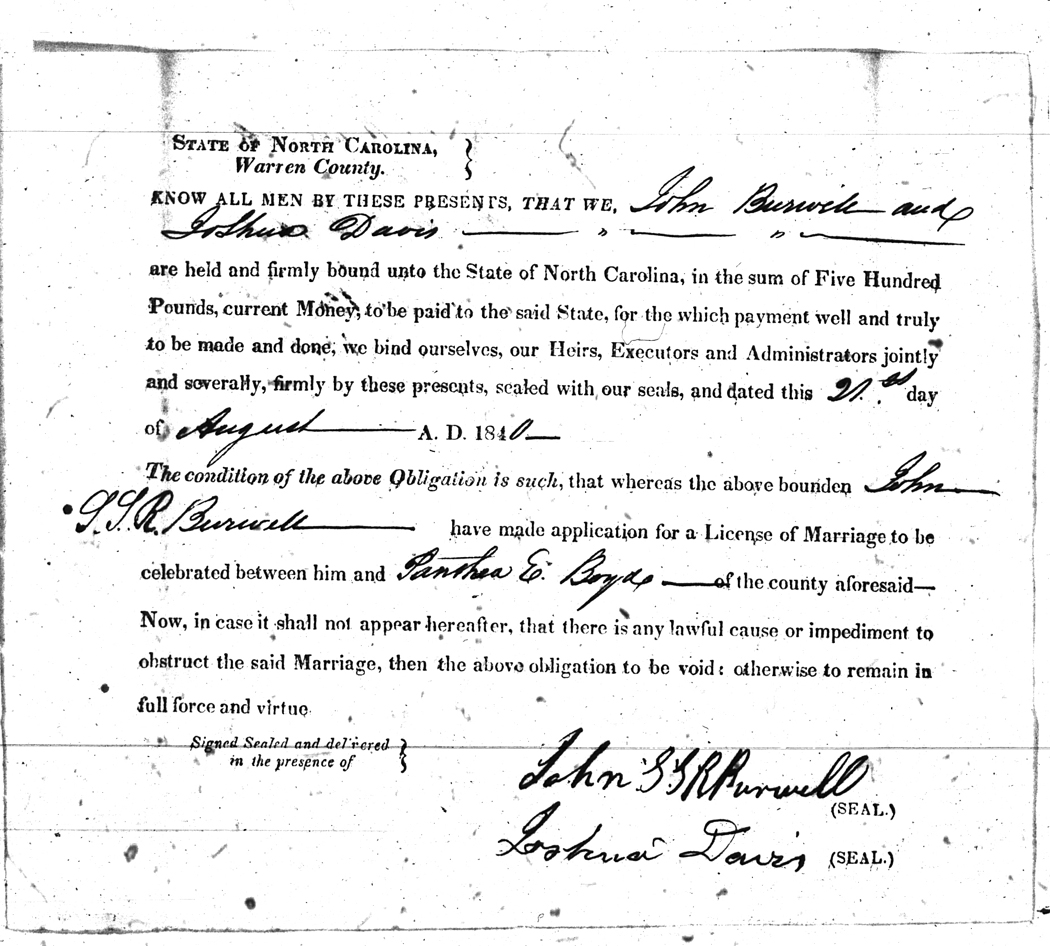 STATE OF NORTH CAROLINA, }
Warren County.
KNOW ALL MEN BY THESE PRESENTS, THAT WE, John Burwell and
Joshua Davis — " — " —
are held and firmly bound unto the State of North Carolina, in the sum of Five Hundred
Pounds, current Money, to be paid to the said State, for the which payment well and truly
to be made and done, we bind ourselves, our Heirs, Executors and Administrators jointly
and severally, firmly by these presents, sealed with our seals, and dated this 21.st day
of August — A. D. 1840 —
The condition of the above Obligation is such, that whereas the above bounden John —
S. S. R. Burwell — have made application for a License of Marriage to be
celebrated between him and Panthea E. Boyd — of the county aforesaid—
Now, in case it shall not appear hereafter, that there is any lawful cause or impediment to
obstruct the said Marriage, then the above obligation to be void: otherwise to remain in
full force and virtue
Signed Sealed and delivered }
in the presence of
John S S R Burwell
(SEAL.)
Joshua Davis (SEAL.)